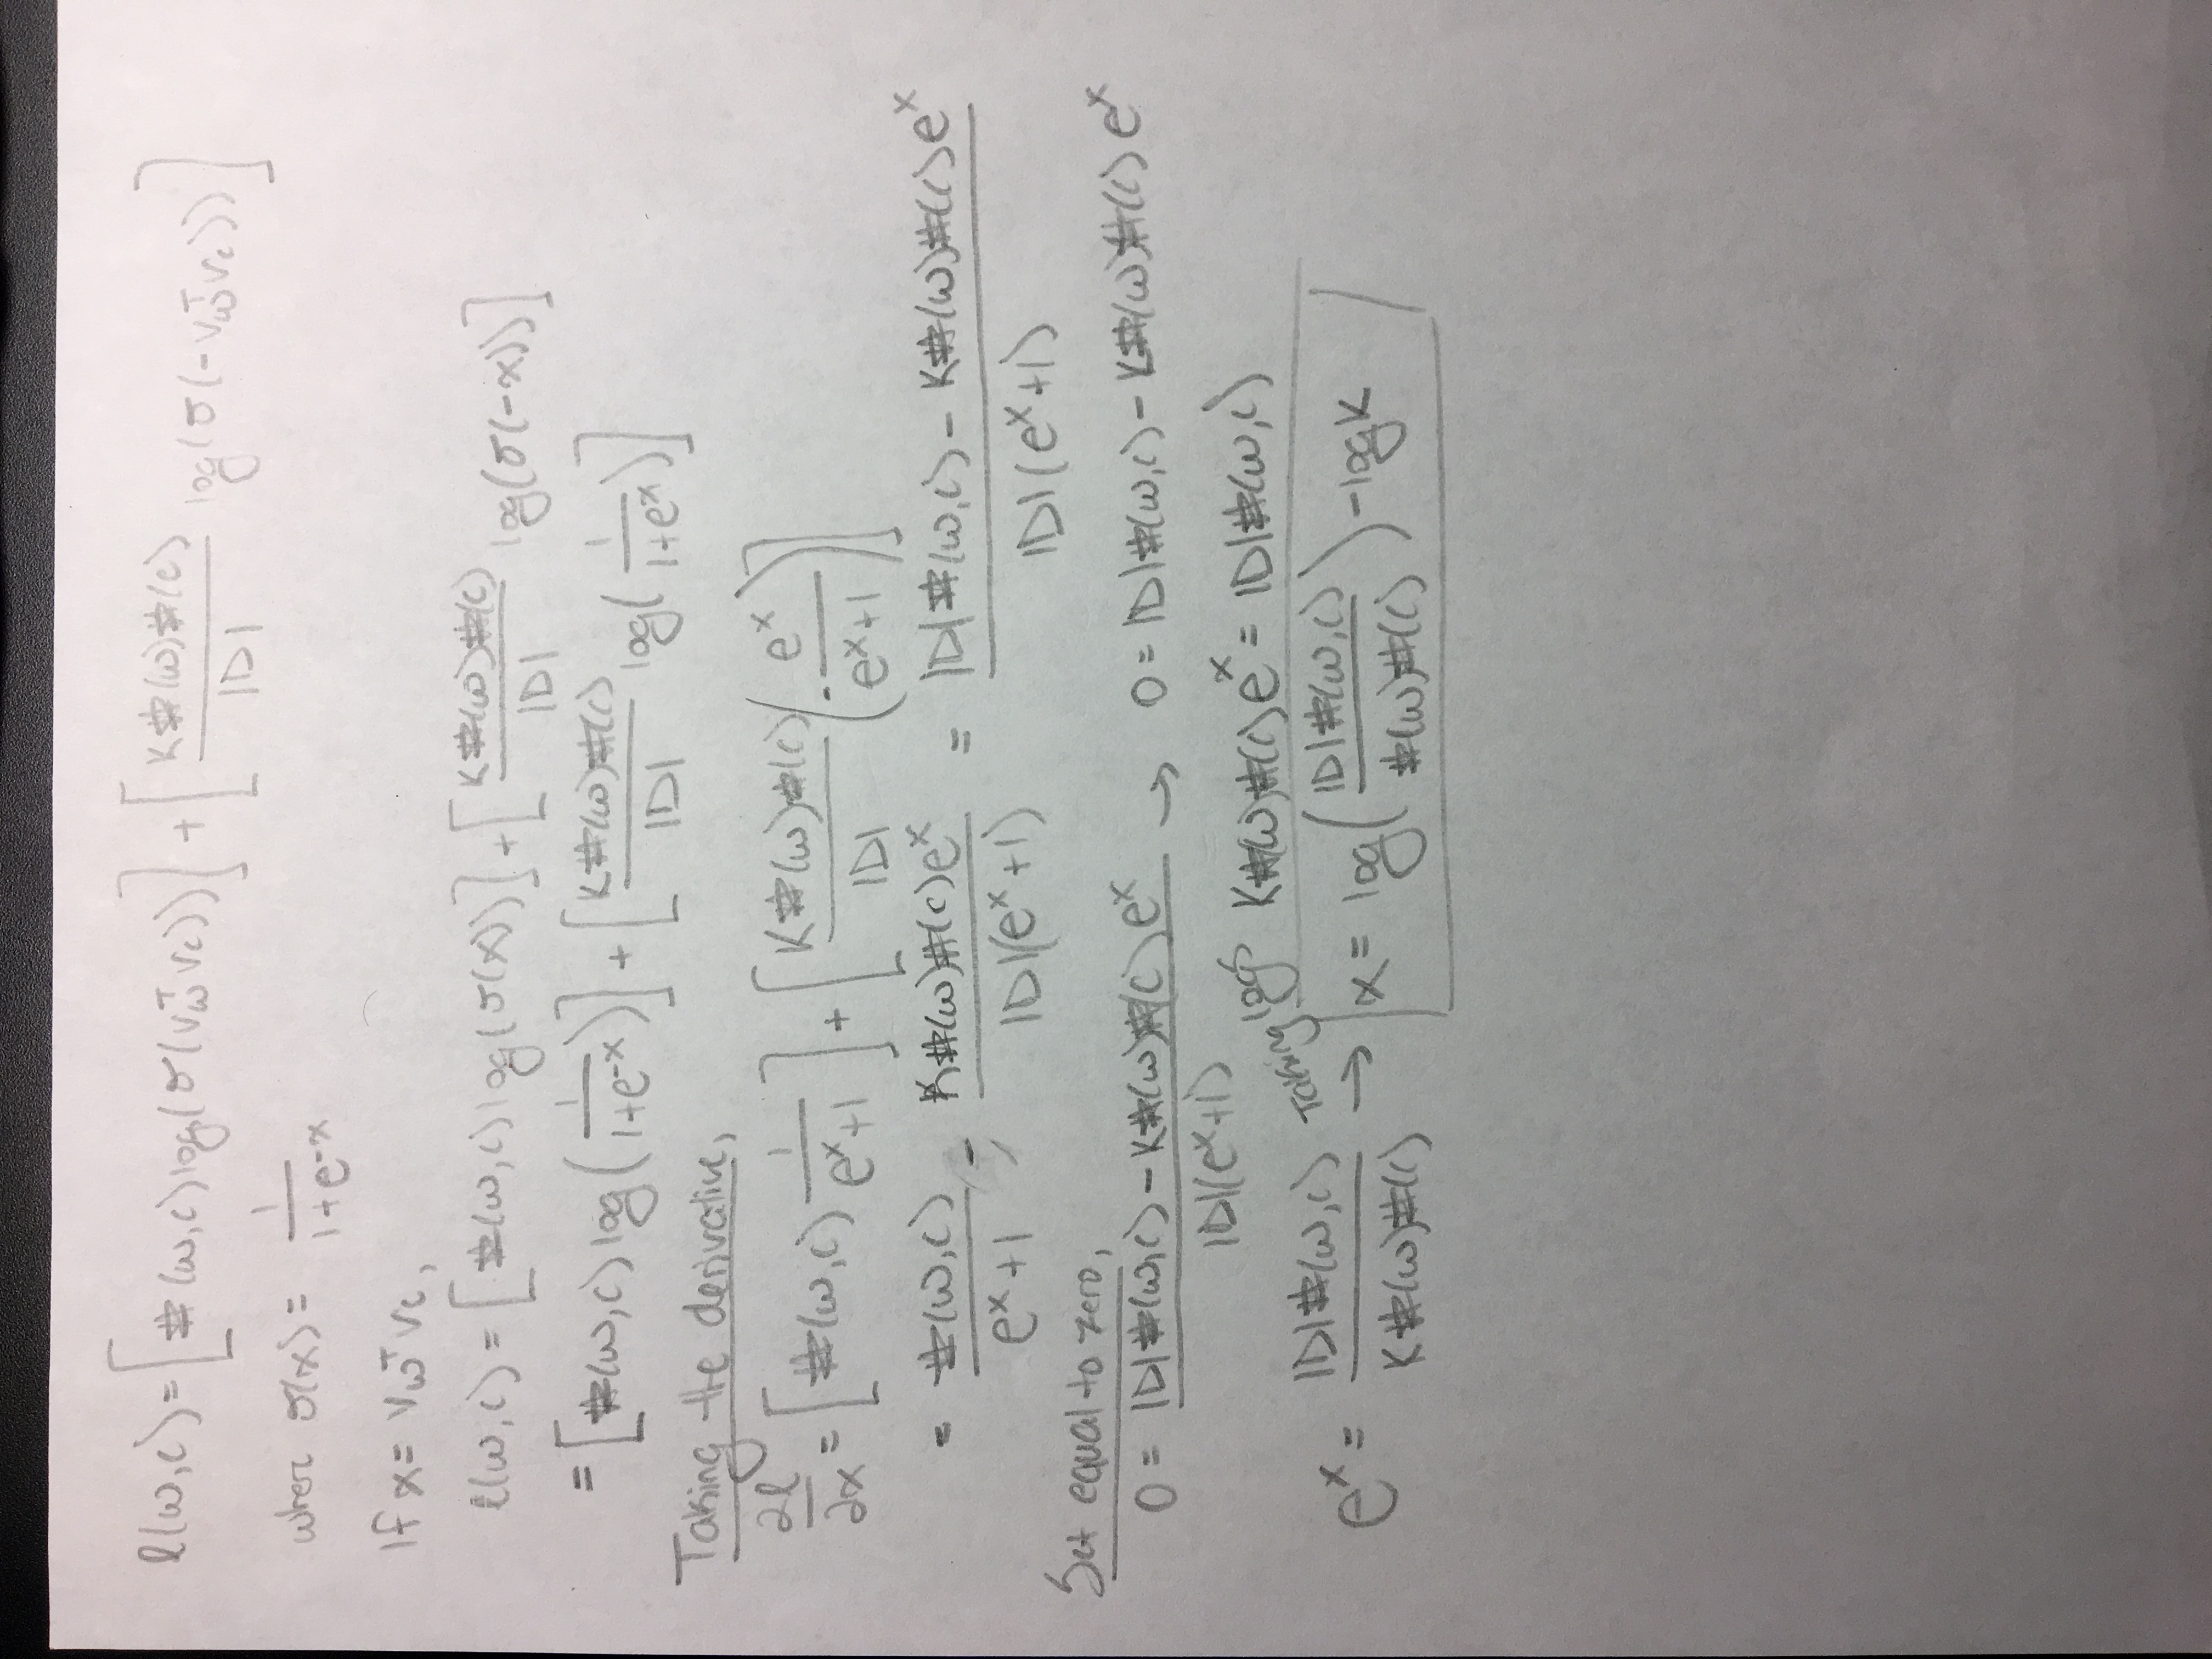 ℓ(w,c) = [#(w,c) log(σ(v_w^T v_c))] + [K#(w)#(c)/|D| log(σ(-v_w^T v_c))]
wher σ(x) = 1/(1+e^-x)
If x = v_w^T v_c,
ℓ(w,c) = [#(w,c) log(σ(x))] + [K#(w)#(c)/|D| log(σ(-x))]
= [#(w,c) log(1/(1+e^-x))] + [K#(w)#(c)/|D| log(1/(1+e^x))]
Taking the derivative,
∂ℓ/∂x = [#(w,c) 1/(e^x+1)] + [K#(w)#(c)/|D| (-e^x/(e^x+1))]
= #(w,c)/(e^x+1) - K#(w)#(c)e^x/(|D|(e^x+1)) = (|D|#(w,c) - K#(w)#(c)e^x)/(|D|(e^x+1))
Set equal to zero,
0 = (|D|#(w,c) - K#(w)#(c)e^x)/(|D|(e^x+1)) → 0 = |D|#(w,c) - K#(w)#(c)e^x
K#(w)#(c)e^x = |D|#(w,c)
e^x = |D|#(w,c)/(K#(w)#(c)) Taking logs → x = log(|D|#(w,c)/(#(w)#(c))) - log K